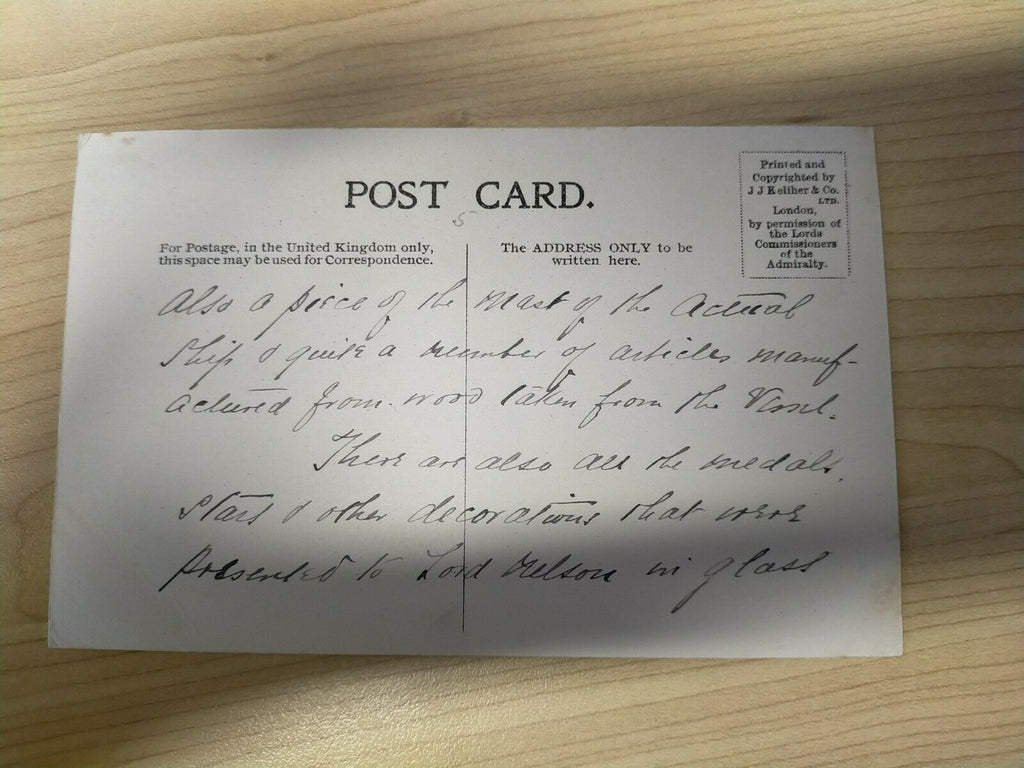 POST CARD.
5
For Postage, in the United Kingdom only,
this space may be used for Correspondence.
The ADDRESS ONLY to be
written here.
Printed and
Copyrighted by
J J Keliher & Co.
LTD.
London,
by permission of
the Lords
Commissioners
of the
Admiralty.
Also a piece of the Mast of the Actual
Ship & quite a number of articles manuf-
actured from wood taken from the Vessel.
There are also all the medals,
Stars & other decorations that were
Presented to Lord Nelson in glass